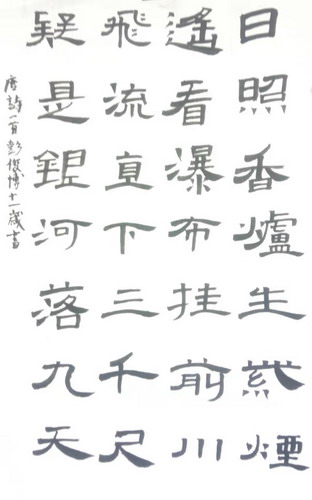 日照香爐生紫煙
遙看瀑布挂前川
飛流直下三千尺
疑是銀河落九天
唐詩一首彭俊博十一歲書